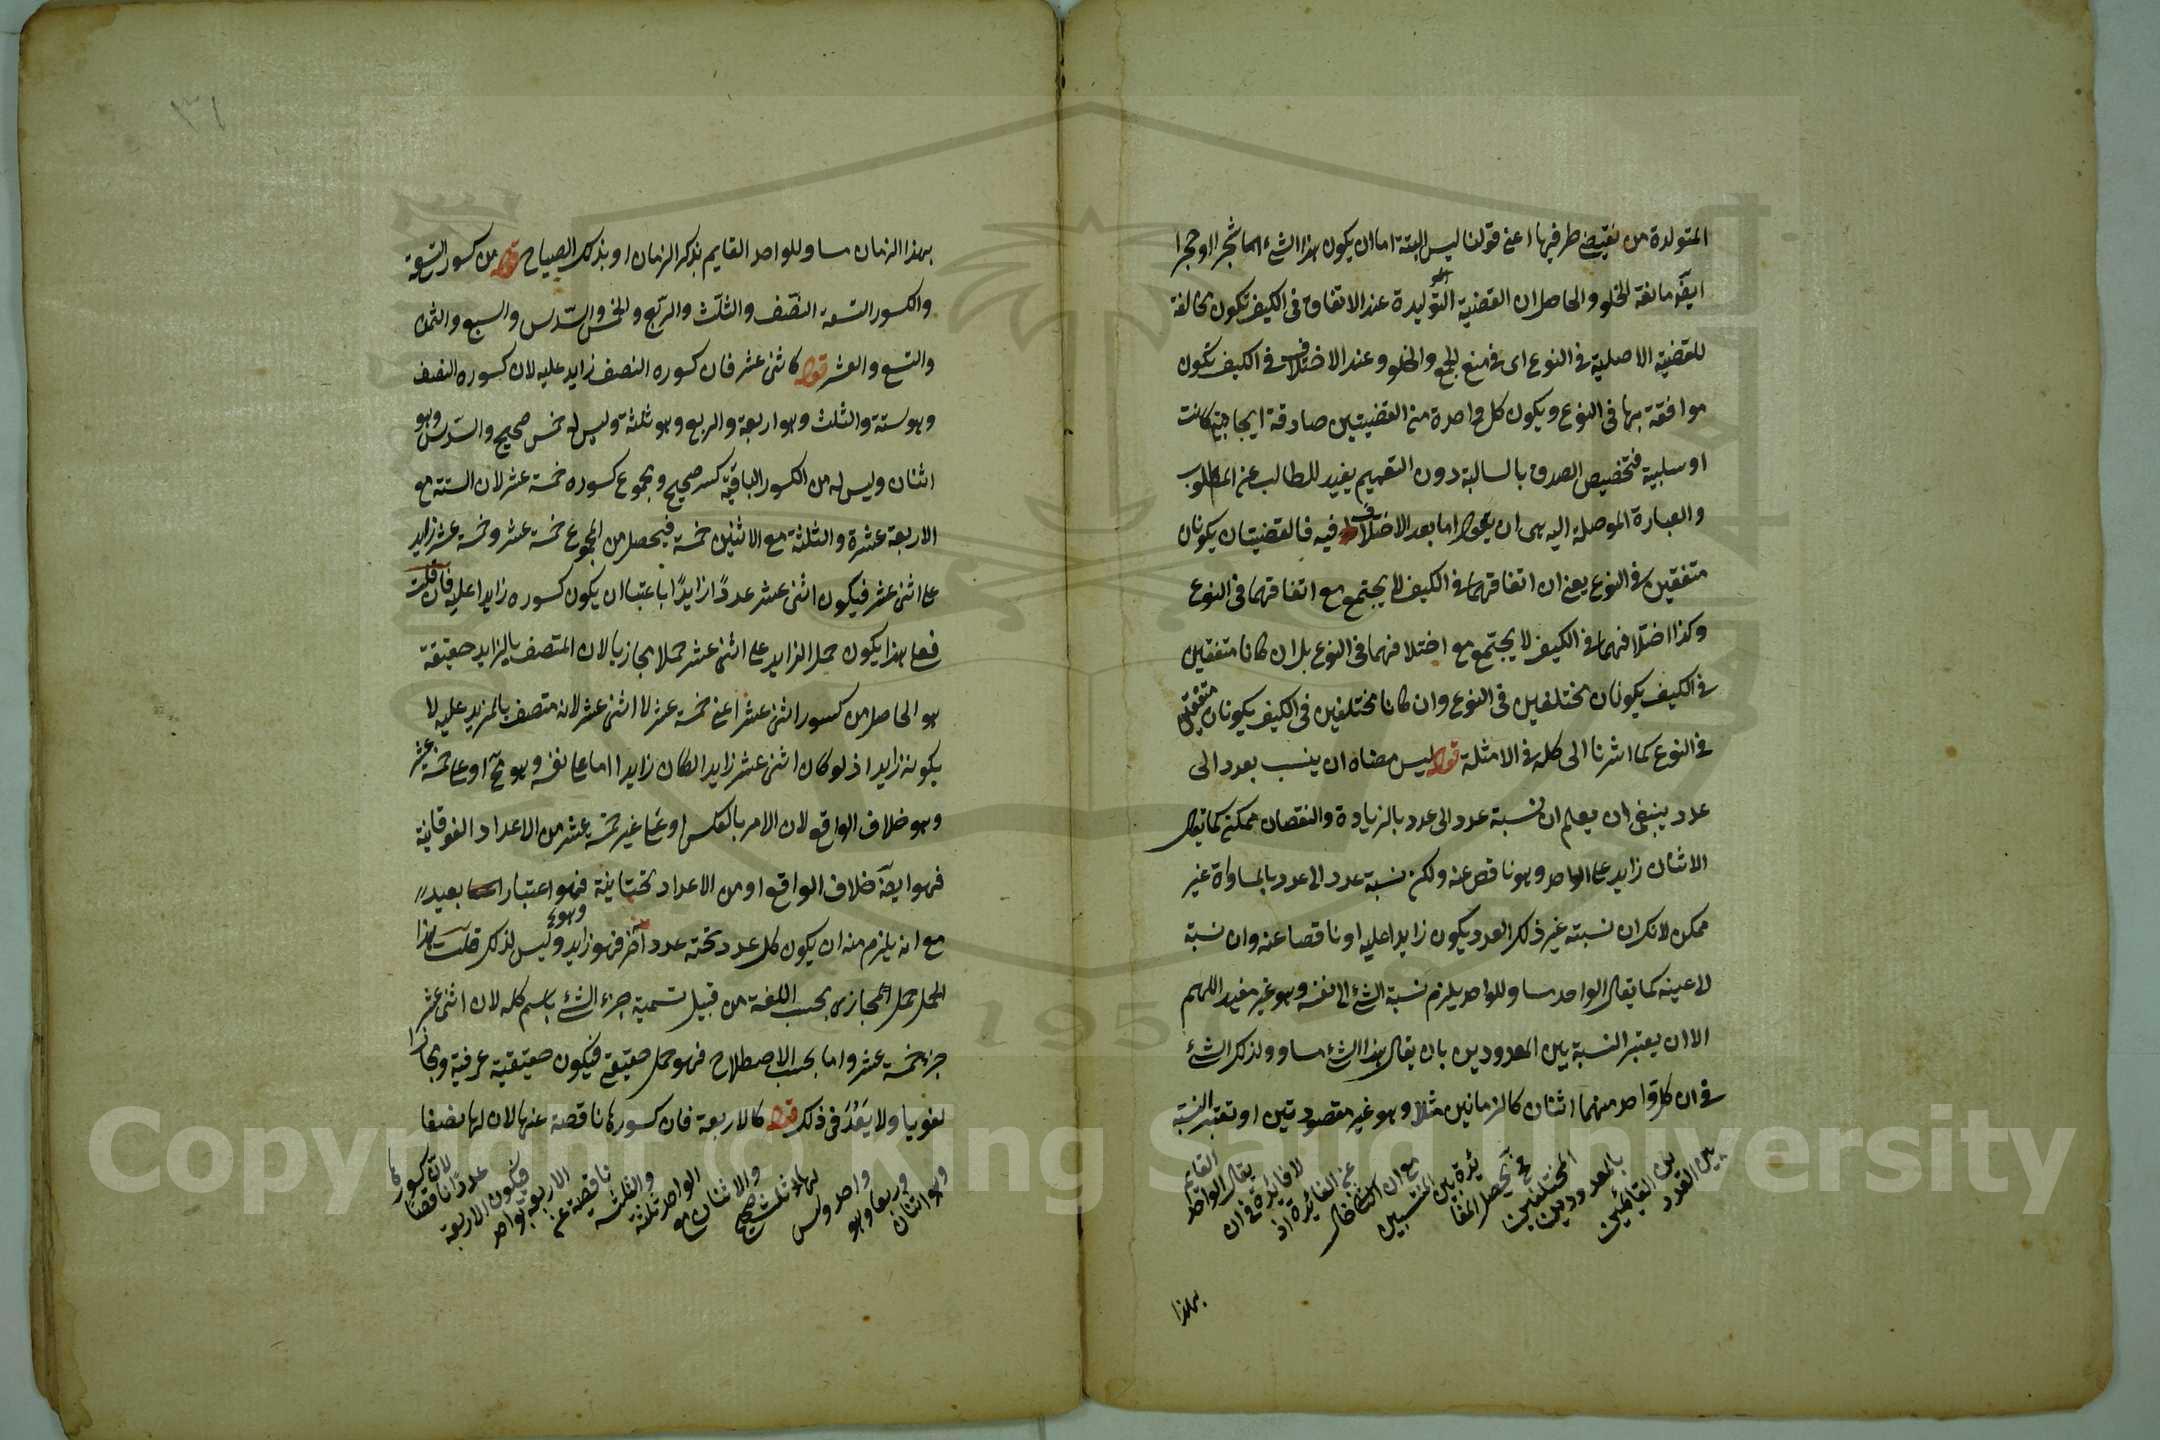 المتولدة من نقيض طرفيها اعنى قولنا ليس البتة اما ان يكون هذا الشئ اما شجرا او حجرا
ايضا مانعة الخلو والحاصل ان القضية المتوليدة عند الاتفاق فى الكيف تكون مخالفة
للقضية الاصلية فى النوع اى فى منع الجمع والخلو وعند الاختلاف فى الكيف تكون
موافقة بها فى النوع ويكون كل واحدة من القضيتين صادقة ايجابية كانت
او سلبية فتخصيص الصدق بالسالبة دون التعميم يفيد للطالب عن المطلوب
والعبارة الموصلة اليه هى ان يقول اما بعد الاختلاف فيه فالقضيتان يكونان
متفقين فى النوع يعنى ان اتفاقهما فى الكيف لا يجتمع مع اتفاقهما فى النوع
وكذا اختلافهما فى الكيف لا يجتمع مع اختلافهما فى النوع بل ان كانا متفقين
فى الكيف يكونان مختلفين فى النوع وان كانا مختلفين فى الكيف يكونان متفقين
فى النوع كما اشرنا الى كله فى الامثلة قوله ليس معناه ان ينسب بعدد الى
عدد ينبغى ان يعلم ان نسبة عدد الى عدد بالزيادة والنقصان ممكنة كما يقال
الاثنان زايد على الواحد وهو ناقص عنه ولكن نسبة عدد الى عدد بالمساواة غير
ممكن لانك ان نسبته غير ذلك العدد يكون زايدا عليه او ناقصا عنه وان نسبة
لا عينه كما يقال الواحد مساو للواحد يلزم نسبة الشئ الى نفسه وهو غير مفيد اللهم
الا ان يعتبر النسبة بين المعدودين بان يقال هذا الشئ مساو لذلك الشئ
فى ان كل واحد منهما اثنان كالزمانين مثلا وهو غير مقصودتين او تعتبر النسبة
بين العدد
بين القائمين
بالمعدودين
المختلفين
فح يحصل المغا
ئرة بين المنتسبين
مع ان الكلام خال
عن الفائدة اذ
لا فائدة فى ان
يقال الواحد
القايم
بهذا
بهذا الزمان مساو للواحد القايم بذكر الزمان او بذلك الصياح قوله من كسور التسعة
والكسور التسعة النصف والثلث والربع والخمس والسدس والسبع والثمن
والتسع والعشر قوله كاثنى عشر فان كسوره النصف زايد عليه لان كسوره النصف
وهو ستة والثلث وهو اربعة والربع وهو ثلثة وليس له خمس صحيح والسدس وهو
اثنان وليس له من الكسور الباقية كسر صحيح ومجموع كسوره خمسة عشر لان الستة مع
الاربعة عشرة والثلثة مع الاثنين خمسة فيحصل من المجموع خمسة عشر وخمسة عشر زايد
على اثنى عشر فيكون اثنى عشر عددا زايدا باعتبار ان يكون كسوره زايدا عليه فان قلت
فعلى هذا يكون حمل الزايد على اثنى عشر حملا مجازيا لان المتصف بالزايد حقيقة
هو الحاصل من كسور اثنى عشر اعنى خمسة عشر لا اثنى عشر لانه متصف بالمزيد عليه لا
بكونه زايدا اذ لو كان اثنى عشر زايدا لكان زايدا اما على نفسه وهو مح او على خمسة عشر
وهو خلاف الواقع لان الامر بالعكس او على غير خمسة عشر من الاعداد الفوقانية
فهو ايضا خلاف الواقع او من الاعداد تحتانية فهو اعتبار بعيد
مع انه يلزم منه ان يكون كل عدد تحته عدد آخر فهو زايد وهو وليس لذلك قلت هذا
الحمل حمل المجازى بحسب اللغة من قبيل تسمية جزء الشئ باسم كله لان اثنى عشر
جزء خمسة عشر واما بحسب الاصطلاح فهو حمل حقيقى فيكون حقيقية عرفية ومجازا
لغويا ولا بعد فى ذلك قوله كالاربعة فان كسورها ناقصة عنها لان لها نصفا
وهو اثنان
وربعا وهو
واحد وليس
لها ثلث صحيح
والاثنان مع
الواحد ثلثة
والثلثة
ناقصة عن
الاربعة بواحد
فيكون الاربعة
عددا ناقصا
لان كسورها